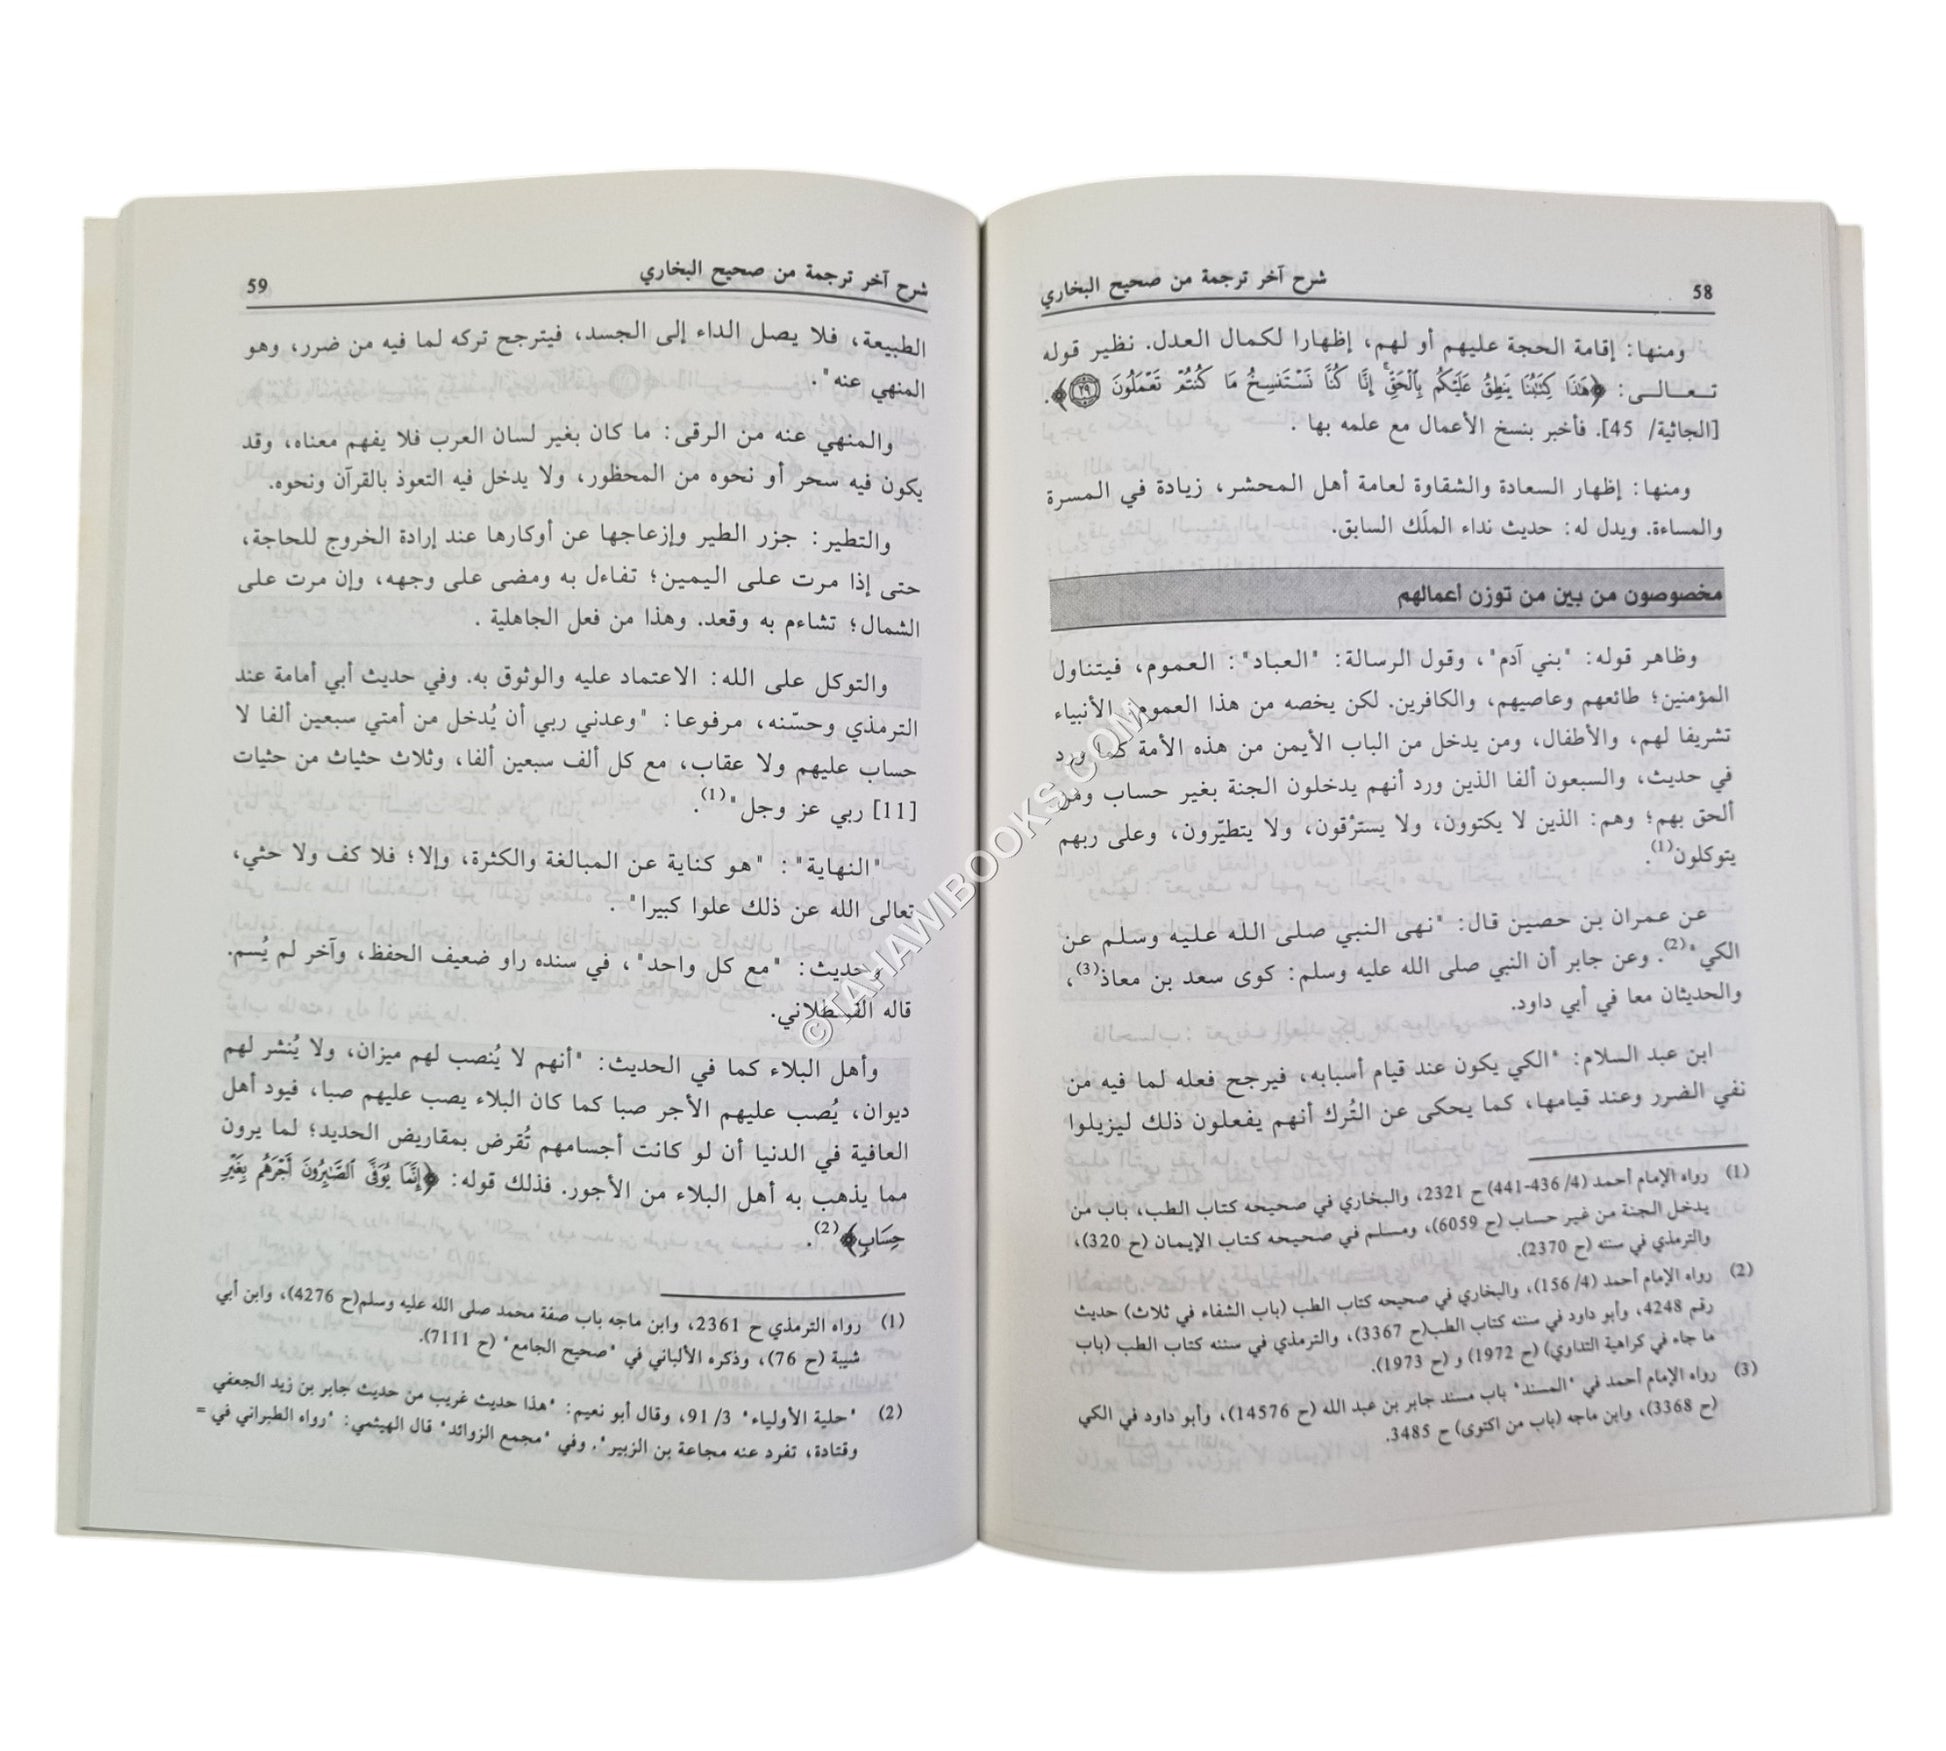 58
شرح آخر ترجمة من صحيح البخاري
ومنها: إقامة الحجة عليهم أو لهم، إظهارا لكمال العدل. نظير قوله
تـعـالـى: ﴿هَٰذَا كِتَٰبُنَا يَنطِقُ عَلَيْكُم بِٱلْحَقِّ إِنَّا كُنَّا نَسْتَنسِخُ مَا كُنتُمْ تَعْمَلُونَ ٢٩﴾.
[الجاثية/ 45]. فأخبر بنسخ الأعمال مع علمه بها .
ومنها: إظهار السعادة والشقاوة لعامة أهل المحشر، زيادة في المسرة
والمساءة. ويدل له: حديث نداء الملَك السابق.
مخصوصون من بين من توزن أعمالهم
وظاهر قوله: "بني آدم"، وقول الرسالة: "العباد": العموم، فيتناول
المؤمنين؛ طائعهم وعاصيهم، والكافرين. لكن يخصه من هذا العموم: الأنبياء
تشريفا لهم، والأطفال، ومن يدخل من الباب الأيمن من هذه الأمة كما ورد
في حديث، والسبعون ألفا الذين ورد أنهم يدخلون الجنة بغير حساب ومن
ألحق بهم؛ وهم: الذين لا يكتوون، ولا يسترْقون، ولا يتطيّرون، وعلى ربهم
يتوكلون(1).
عن عمران بن حصين قال: "نهى النبي صلى الله عليه وسلم عن
الكي"(2). وعن جابر أن النبي صلى الله عليه وسلم: كوى سعد بن معاذ(3)،
والحديثان معا في أبي داود.
ابن عبد السلام: "الكي يكون عند قيام أسبابه، فيرجح فعله لما فيه من
نفي الضرر وعند قيامها، كما يحكى عن التُرك أنهم يفعلون ذلك ليزيلوا
(1) رواه الإمام أحمد (4/ 436-441) ح 2321، والبخاري في صحيحه كتاب الطب، باب من
يدخل الجنة من غير حساب (ح 6059)، ومسلم في صحيحه كتاب الإيمان (ح 320)،
والترمذي في سننه (ح 2370).
(2) رواه الإمام أحمد (4/ 156)، والبخاري في صحيحه كتاب الطب (باب الشفاء في ثلاث) حديث
رقم 4248، وأبو داود في سننه كتاب الطب(ح 3367)، والترمذي في سننه كتاب الطب (باب
ما جاء في كراهية التداوي) (ح 1972) و (ح 1973).
(3) رواه الإمام أحمد في "المسند" باب مسند جابر بن عبد الله (ح 14576)، وأبو داود في الكي
(ح 3368)، وابن ماجه (باب من اكتوى) ح 3485.
شرح آخر ترجمة من صحيح البخاري
59
الطبيعة، فلا يصل الداء إلى الجسد، فيترجح تركه لما فيه من ضرر، وهو
المنهي عنه".
والمنهي عنه من الرقى: ما كان بغير لسان العرب فلا يفهم معناه، وقد
يكون فيه سحر أو نحوه من المحظور، ولا يدخل فيه التعوذ بالقرآن ونحوه.
والتطير: جزر الطير وإزعاجها عن أوكارها عند إرادة الخروج للحاجة،
حتى إذا مرت على اليمين؛ تفاءل به ومضى على وجهه، وإن مرت على
الشمال؛ تشاءم به وقعد. وهذا من فعل الجاهلية .
والتوكل على الله: الاعتماد عليه والوثوق به. وفي حديث أبي أمامة عند
الترمذي وحسّنه، مرفوعا: "وعدني ربي أن يُدخل من أمتي سبعين ألفا لا
حساب عليهم ولا عقاب، مع كل ألف سبعين ألفا، وثلاث حثياث من حثيات
[11] ربي عز وجل"(1).
"النهاية": "هو كناية عن المبالغة والكثرة، وإلا؛ فلا كف ولا حثي،
تعالى الله عن ذلك علوا كبيرا" .
وحديث: "مع كل واحد"، في سنده راو ضعيف الحفظ، وآخر لم يُسم.
قاله القسطلاني.
وأهل البلاء كما في الحديث: "أنهم لا يُنصب لهم ميزان، ولا يُنشر لهم
ديوان، يُصب عليهم الأجر صبا كما كان البلاء يصب عليهم صبا، فيود أهل
العافية في الدنيا أن لو كانت أجسامهم تُقرض بمقاريض الحديد؛ لما يرون
مما يذهب به أهل البلاء من الأجور. فذلك قوله: ﴿إِنَّمَا يُوَفَّى ٱلصَّٰبِرُونَ أَجْرَهُم بِغَيْرِ
حِسَابٍ﴾(2).
(1) رواه الترمذي ح 2361، وابن ماجه باب صفة محمد صلى الله عليه وسلم(ح 4276)، وابن أبي
شيبة (ح 76)، وذكره الألباني في "صحيح الجامع" (ح 7111).
(2) "حلية الأولياء" 3/ 91، وقال أبو نعيم: "هذا حديث غريب من حديث جابر بن زيد الجعفي
وقتادة، تفرد عنه مجاعة بن الزبير". وفي "مجمع الزوائد" قال الهيثمي: "رواه الطبراني في =
©TAHAWIBOOKS.COM